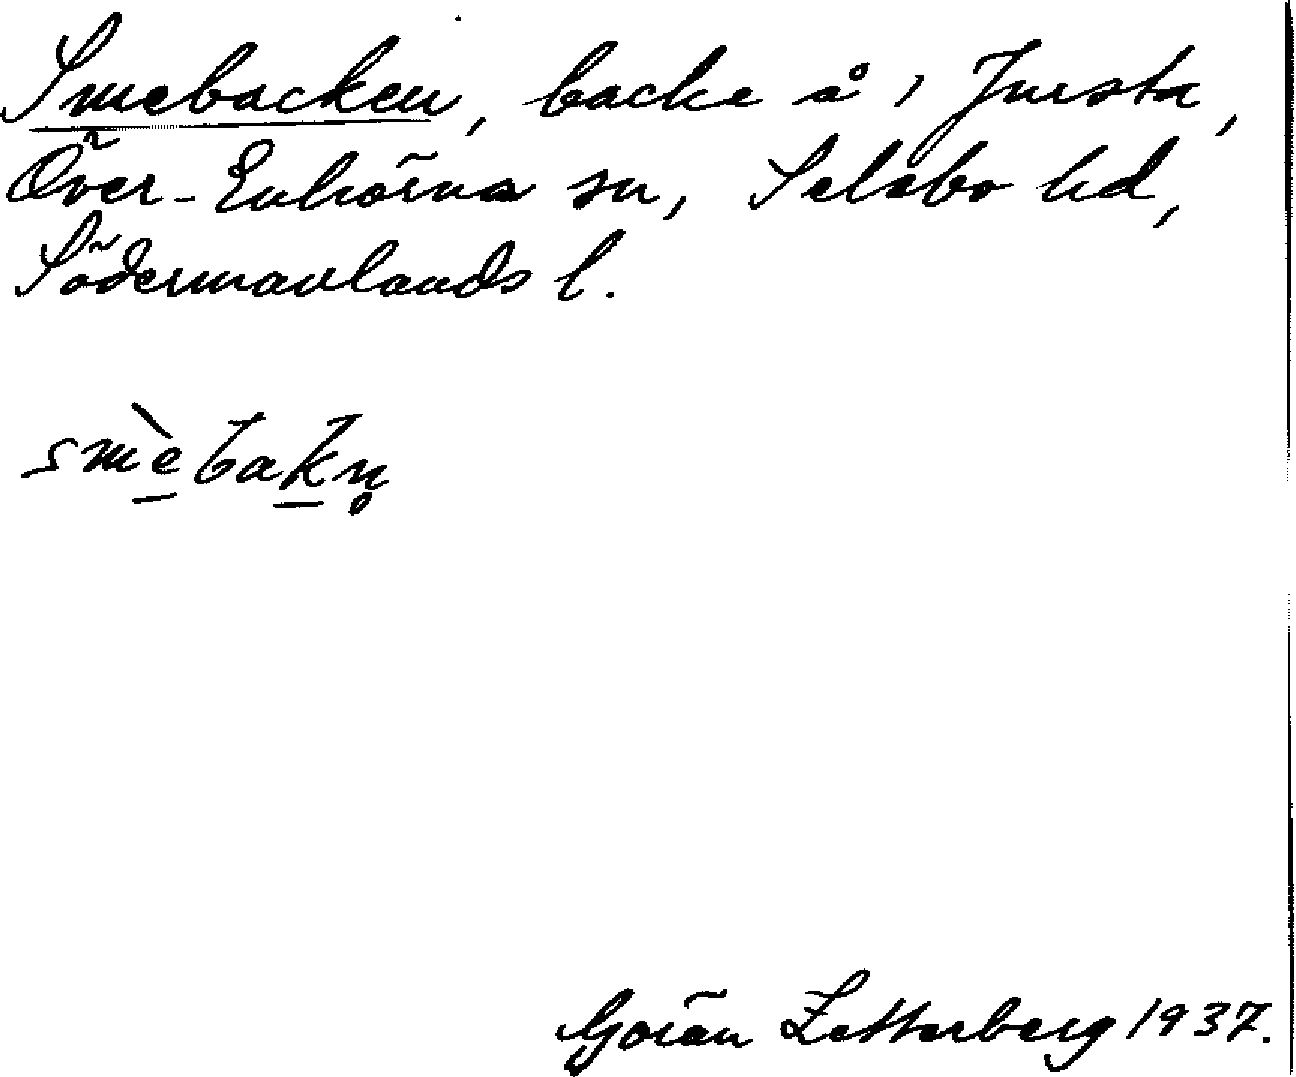 Smebacken, backe å 1 Jursta,
Över-Enhörna sn, Selebo hd,
Södermanlands l.
smὲbakn̥
Göran Zetterberg 1937.